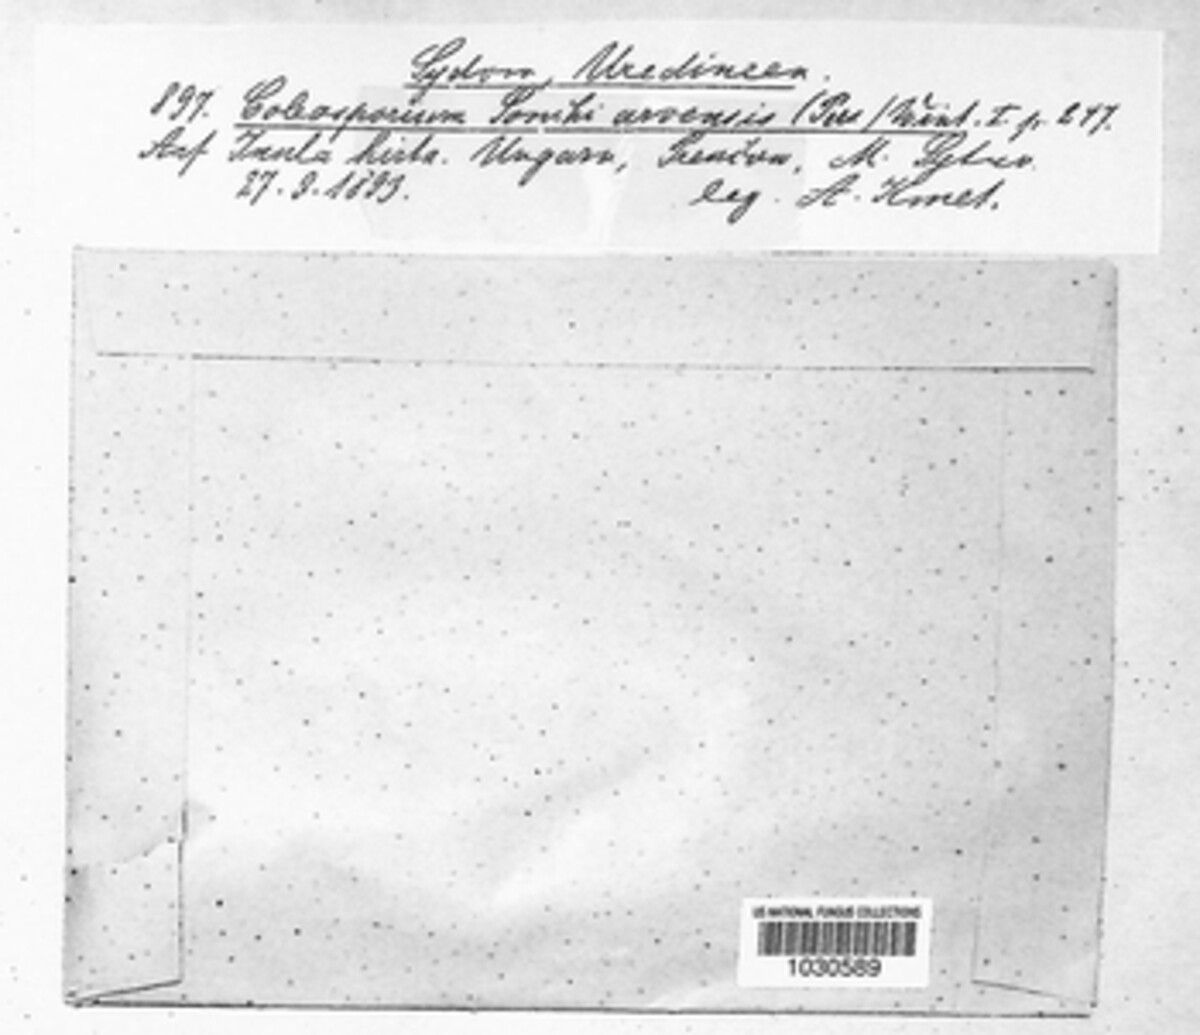 Sydow, Uredineen.
897. Coleosporium Sonchi arvensis (Pers) Wint. I p. 247.
Auf Inula hirta. Ungarn, Trenčin, M.
27. 9. 1893. leg. A. Kmet.
US NATIONAL FUNGUS COLLECTIONS
1030589